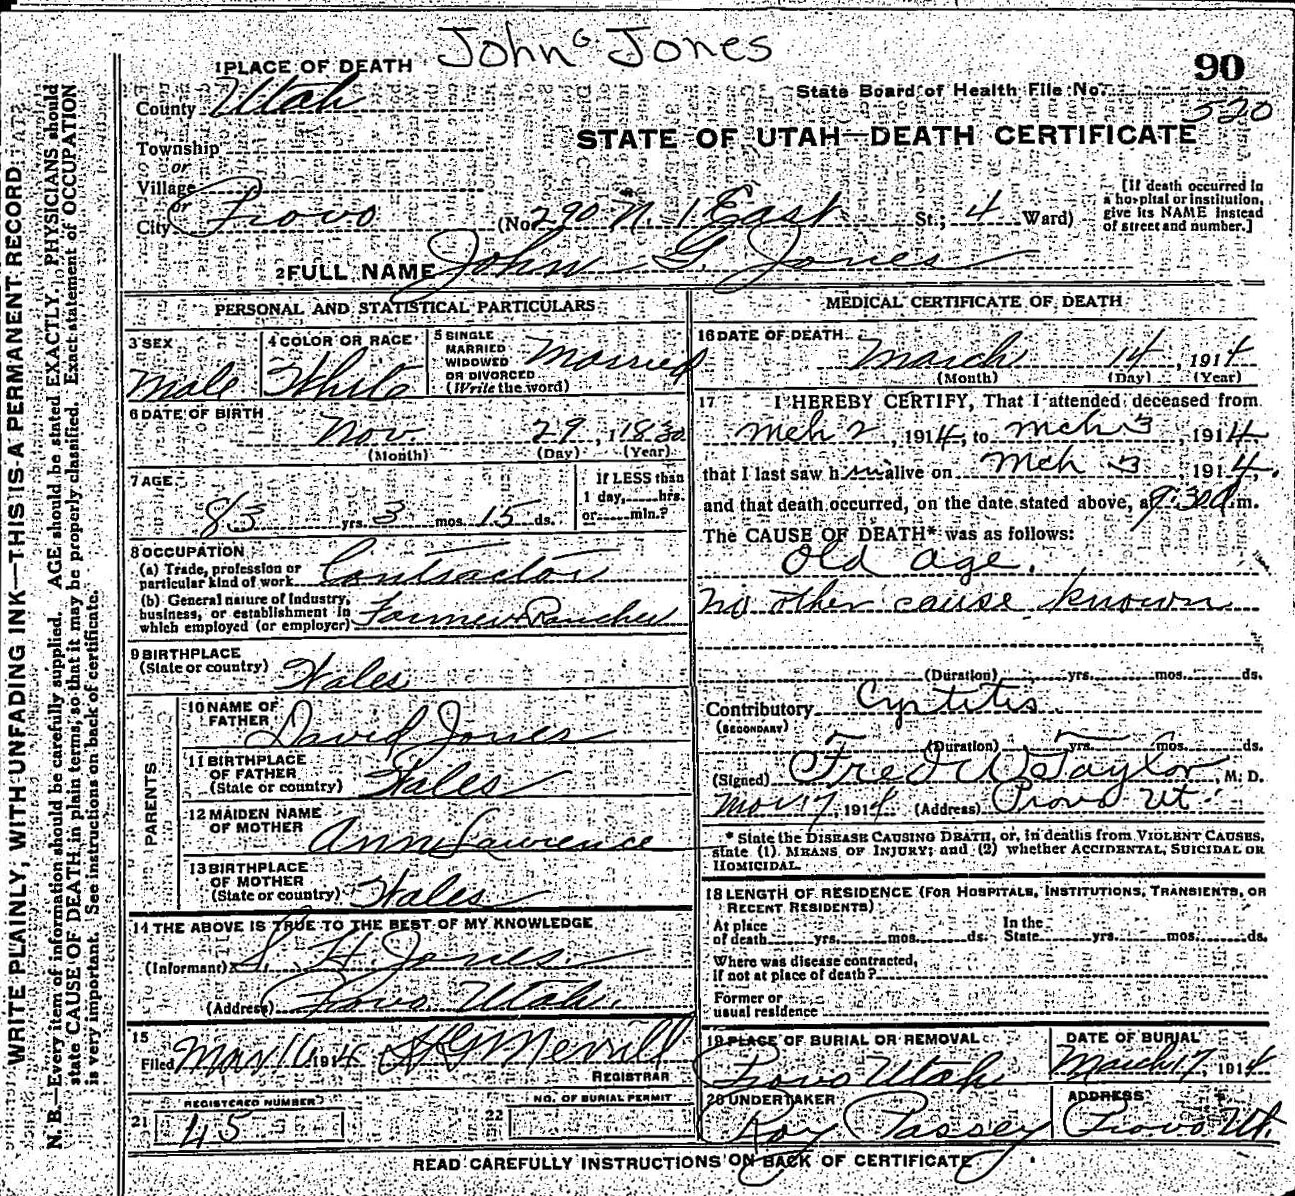 John G Jones
90
1 PLACE OF DEATH
County Utah
State Board of Health File No. 520
STATE OF UTAH—DEATH CERTIFICATE
Township
or
Village
or
City Provo
(No. 290 N. 1 East St.; 4 Ward)
[If death occurred in a hospital or institution, give its NAME instead of street and number.]
2 FULL NAME John G. Jones
PERSONAL AND STATISTICAL PARTICULARS
3 SEX
Male
4 COLOR OR RACE
White
5 SINGLE
MARRIED
WIDOWED
OR DIVORCED
(Write the word)
Married
6 DATE OF BIRTH
Nov. 29, 1830
(Month) (Day) (Year)
7 AGE
83 yrs. 3 mos. 15 ds.
If LESS than
1 day, hrs.
or min.?
8 OCCUPATION
(a) Trade, profession or
particular kind of work Contractor
(b) General nature of Industry,
business, or establishment in
which employed (or employer) Farmer Rancher
9 BIRTHPLACE
(State or country) Wales
PARENTS
10 NAME OF
FATHER David Jones
11 BIRTHPLACE
OF FATHER
(State or country) Wales
12 MAIDEN NAME
OF MOTHER Ann Lawrence
13 BIRTHPLACE
OF MOTHER
(State or country) Wales
14 THE ABOVE IS TRUE TO THE BEST OF MY KNOWLEDGE
(Informant) S. H. Jones
(Address) Provo Utah.
15
Filed Mar 16 1914 Merrill
REGISTRAR
REGISTERED NUMBER
21 45
NO. OF BURIAL PERMIT
22
MEDICAL CERTIFICATE OF DEATH
16 DATE OF DEATH
March 14, 1914
(Month) (Day) (Year)
17 I HEREBY CERTIFY, That I attended deceased from
Mch 2, 1914, to Mch 3, 1914
that I last saw h im alive on Mch 3, 1914,
and that death occurred, on the date stated above, at 9:30 m.
The CAUSE OF DEATH* was as follows:
Old age.
No other cause known
(Duration) yrs. mos. ds.
Contributory Cystitis
(SECONDARY)
(Duration) yrs. mos. ds.
(Signed) Fred W Taylor, M. D.
Mar 17, 1914 (Address) Provo Ut
* State the DISEASE CAUSING DEATH, or, in deaths from VIOLENT CAUSES,
state (1) MEANS OF INJURY; and (2) whether ACCIDENTAL, SUICIDAL OR
HOMICIDAL.
18 LENGTH OF RESIDENCE (FOR HOSPITALS, INSTITUTIONS, TRANSIENTS, OR
RECENT RESIDENTS)
At place
of death yrs. mos. ds.
In the
State yrs. mos. ds.
Where was disease contracted,
if not at place of death?
Former or
usual residence
19 PLACE OF BURIAL OR REMOVAL
Provo Utah
DATE OF BURIAL
March 17, 1914
20 UNDERTAKER
Roy Passey
ADDRESS
Provo Ut.
READ CAREFULLY INSTRUCTIONS ON BACK OF CERTIFICATE
WRITE PLAINLY, WITH UNFADING INK—THIS IS A PERMANENT RECORD
N. B.—Every item of information should be carefully supplied. AGE should be stated EXACTLY. PHYSICIANS should
state CAUSE OF DEATH in plain terms, so that it may be properly classified. Exact statement of OCCUPATION
is very important. See instructions on back of certificate.